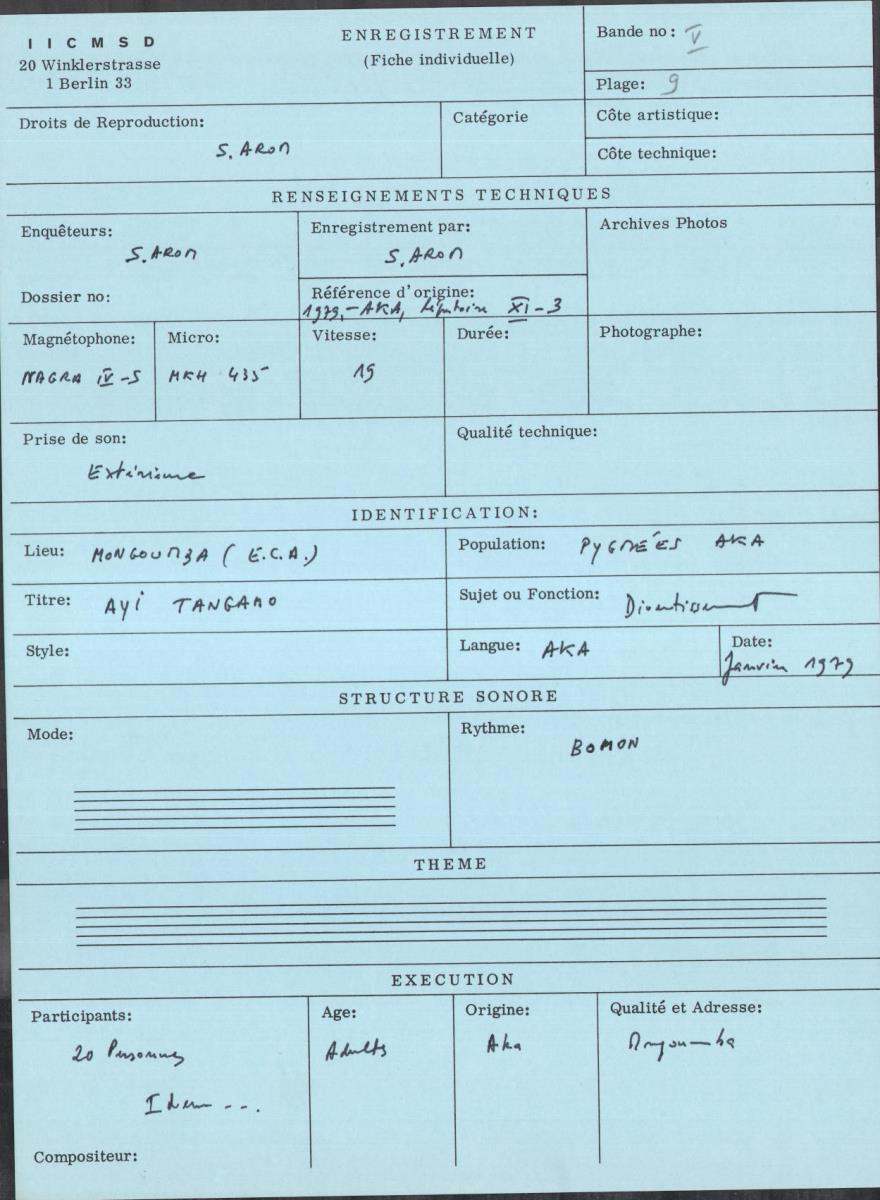 I I C M S D
20 Winklerstrasse
1 Berlin 33
ENREGISTREMENT
(Fiche individuelle)
Bande no: V
Plage: 9
Droits de Reproduction:
S. AROM
Catégorie
Côte artistique:
Côte technique:
RENSEIGNEMENTS TECHNIQUES
Enquêteurs:
S. AROM
Dossier no:
Enregistrement par:
S. AROM
Référence d'origine:
1979,- AKA, Répertoire XI-3
Archives Photos
Magnétophone:
NAGRA IV-S
Micro:
MKH 435
Vitesse:
19
Durée:
Photographe:
Prise de son:
Extérieure
Qualité technique:
IDENTIFICATION:
Lieu: MONGOUMBA ( E.C.A.)
Population: PYGMÉES AKA
Titre: AYI TANGAMO
Sujet ou Fonction: Divertissement
Style:
Langue: AKA
Date:
Janvier 1979
STRUCTURE SONORE
Mode:
Rythme:
BOMON
THEME
EXECUTION
Participants:
20 Personnes
Idem - - .
Age:
Adults
Origine:
Aka
Qualité et Adresse:
Mongoumba
Compositeur: